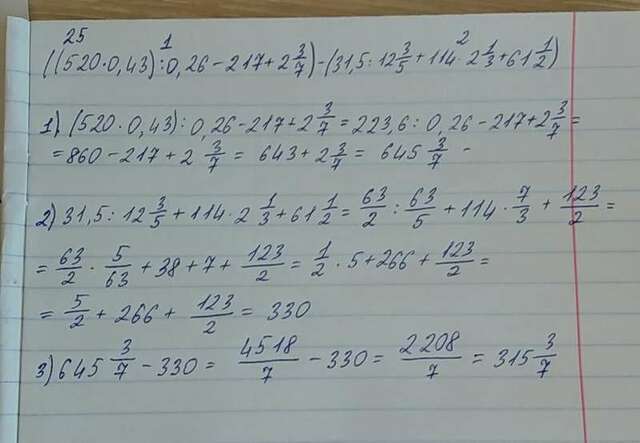 25
1 2
((520·0,43):0,26-217+2 3/7)-(31,5:12 3/5+114·2 1/3+61 1/2)
1) (520·0,43):0,26-217+2 3/7=223,6:0,26-217+2 3/7=
=860-217+2 3/7=643+2 3/7=645 3/7 -
2) 31,5:12 3/5+114·2 1/3+61 1/2=63/2:63/5+114·7/3+123/2=
=63/2·5/63+38+7+123/2=1/2·5+266+123/2=
=5/2+266+123/2=330
3) 645 3/7-330=4518/7-330=2208/7=315 3/7